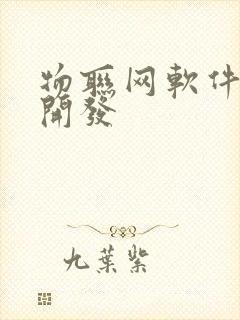 物聯网軟件
開發
九葉紫